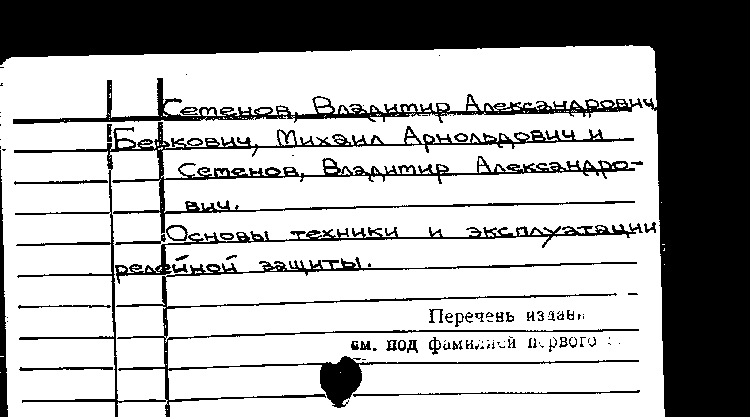 Сетенов, Владитир Александрович
Беркович, Михаил Арнольдович и
Сетенов, Владитир Александро-
вич.
Основы техники и эксплуатации
релейной защиты.
Перечень
см. под фамилией первого